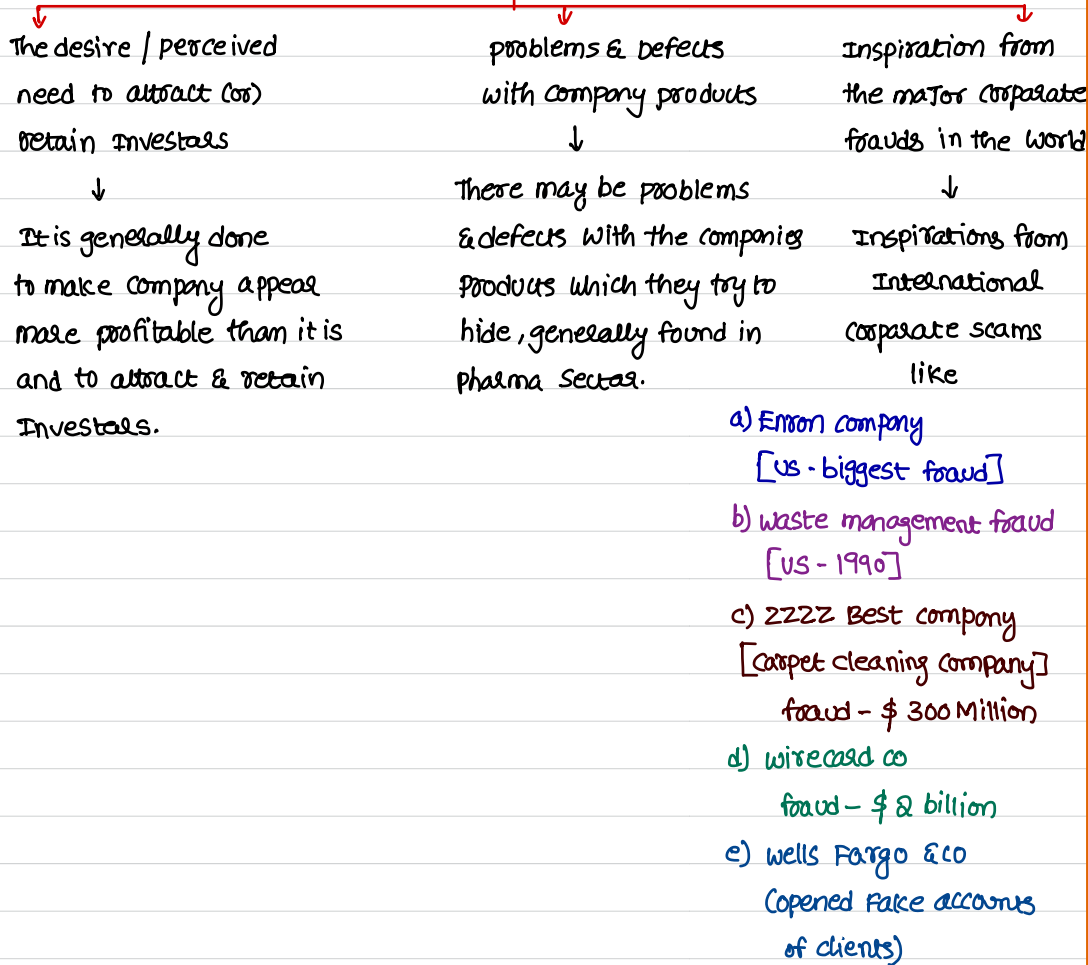 The desire / perceived
need to attract (or)
retain Investors
↓
It is generally done
to make company appear
more profitable than it is
and to attract & retain
Investors.
problems & Defects
with company products
↓
There may be problems
& defects with the companies
products which they try to
hide, generally found in
pharma sector.
Inspiration from
the major corporate
frauds in the world
↓
Inspirations from
International
corporate scams
like
a) Enron company
[US - biggest fraud]
b) waste management fraud
[US - 1990]
c) ZZZZ Best company
[carpet cleaning company]
fraud - $ 300 Million
d) wirecard co
fraud - $ 2 billion
e) wells Fargo & co
(opened Fake accounts
of clients)